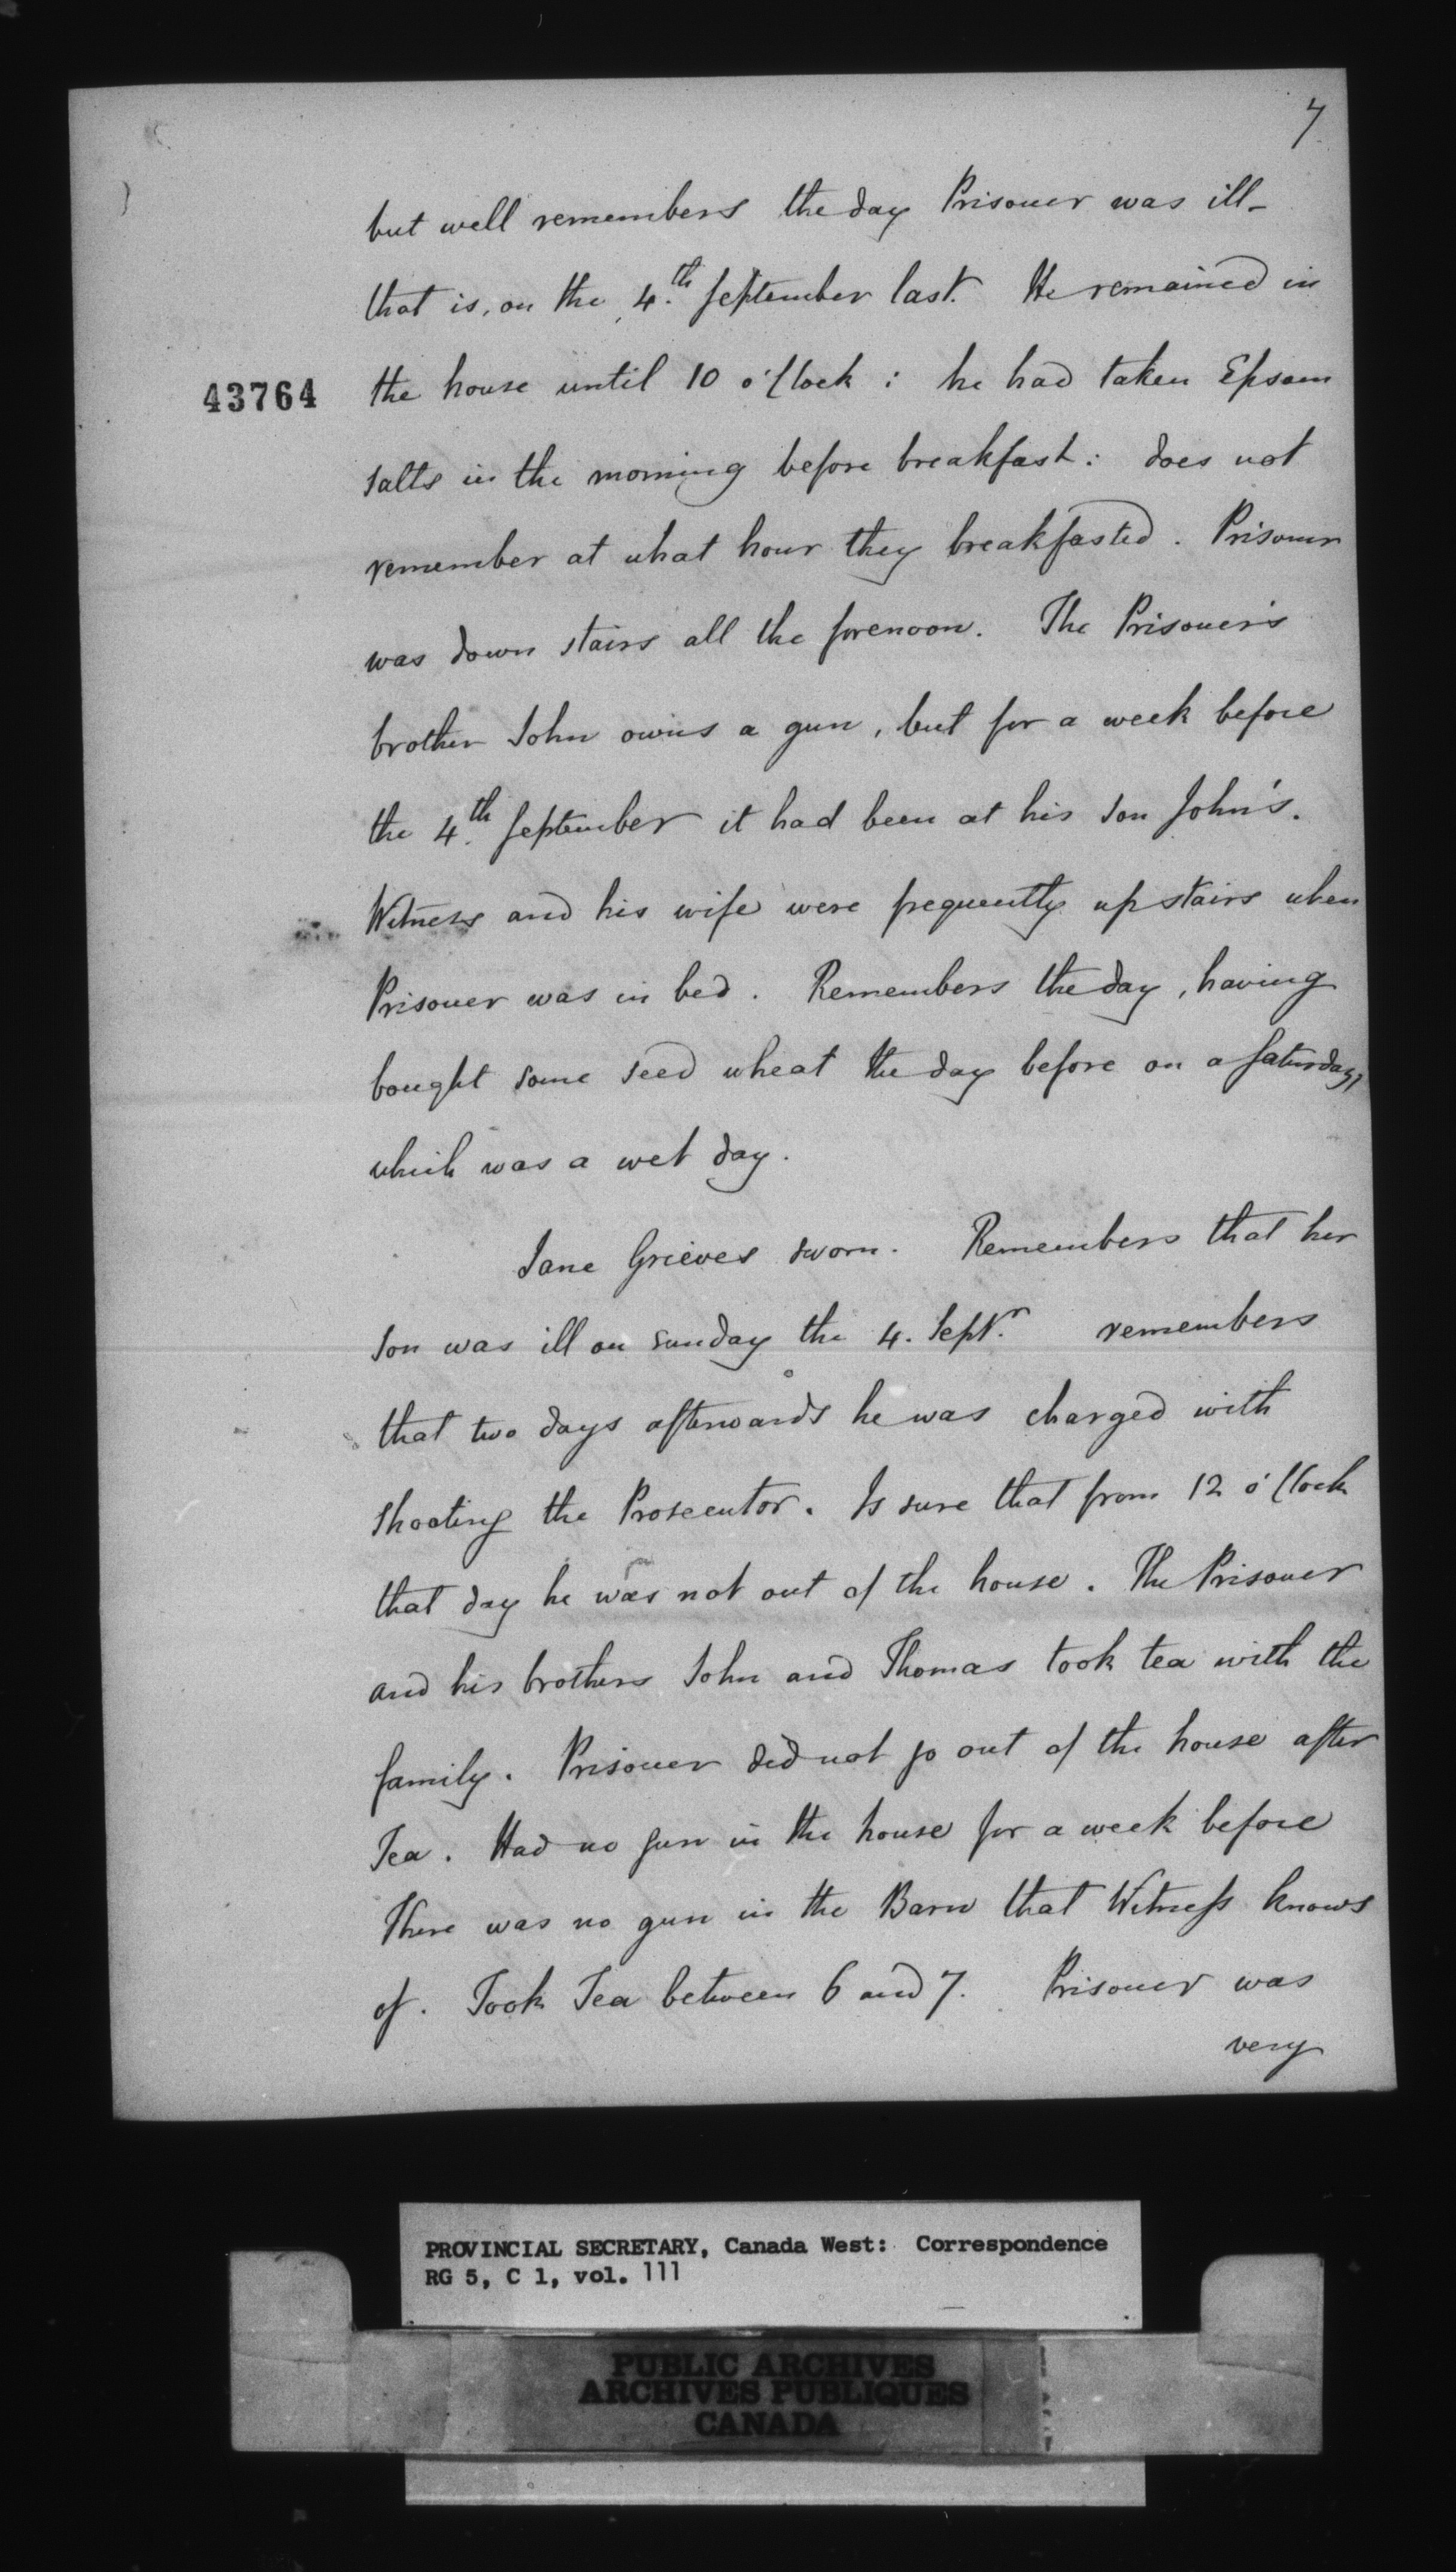 7
but well remembers the day Prisoner was ill-
that is, on the 4.th September last. He remained in
43764
the house until 10 o'Clock : he had taken Epsom
salts in the morning before breakfast: does not
remember at what hour they breakfasted. Prisoner
was down stairs all the forenoon. The Prisoner's
brother John owns a gun, but for a week before
the 4.th September it had been at his son John's.
Witness and his wife were frequently up stairs when
Prisoner was in bed. Remembers the day, having
bought some seed wheat the day before on a Saturday,
which was a wet day.
Jane Grieves sworn. Remembers that her
son was ill on sunday the 4. Septr. remembers
that two days afterwards he was charged with
shooting the Prosecutor. Is sure that from 12 o'Clock
that day he was not out of the house. The Prisoner
and his brothers John and Thomas took tea with the
family. Prisoner did not go out of the house after
Tea. Had no gun in the house for a week before
There was no gun in the Barn that Witness knows
of. Took Tea between 6 and 7. Prisoner was
very
PROVINCIAL SECRETARY, Canada West: Correspondence
RG 5, C 1, vol. 111
PUBLIC ARCHIVES
ARCHIVES PUBLIQUES
CANADA